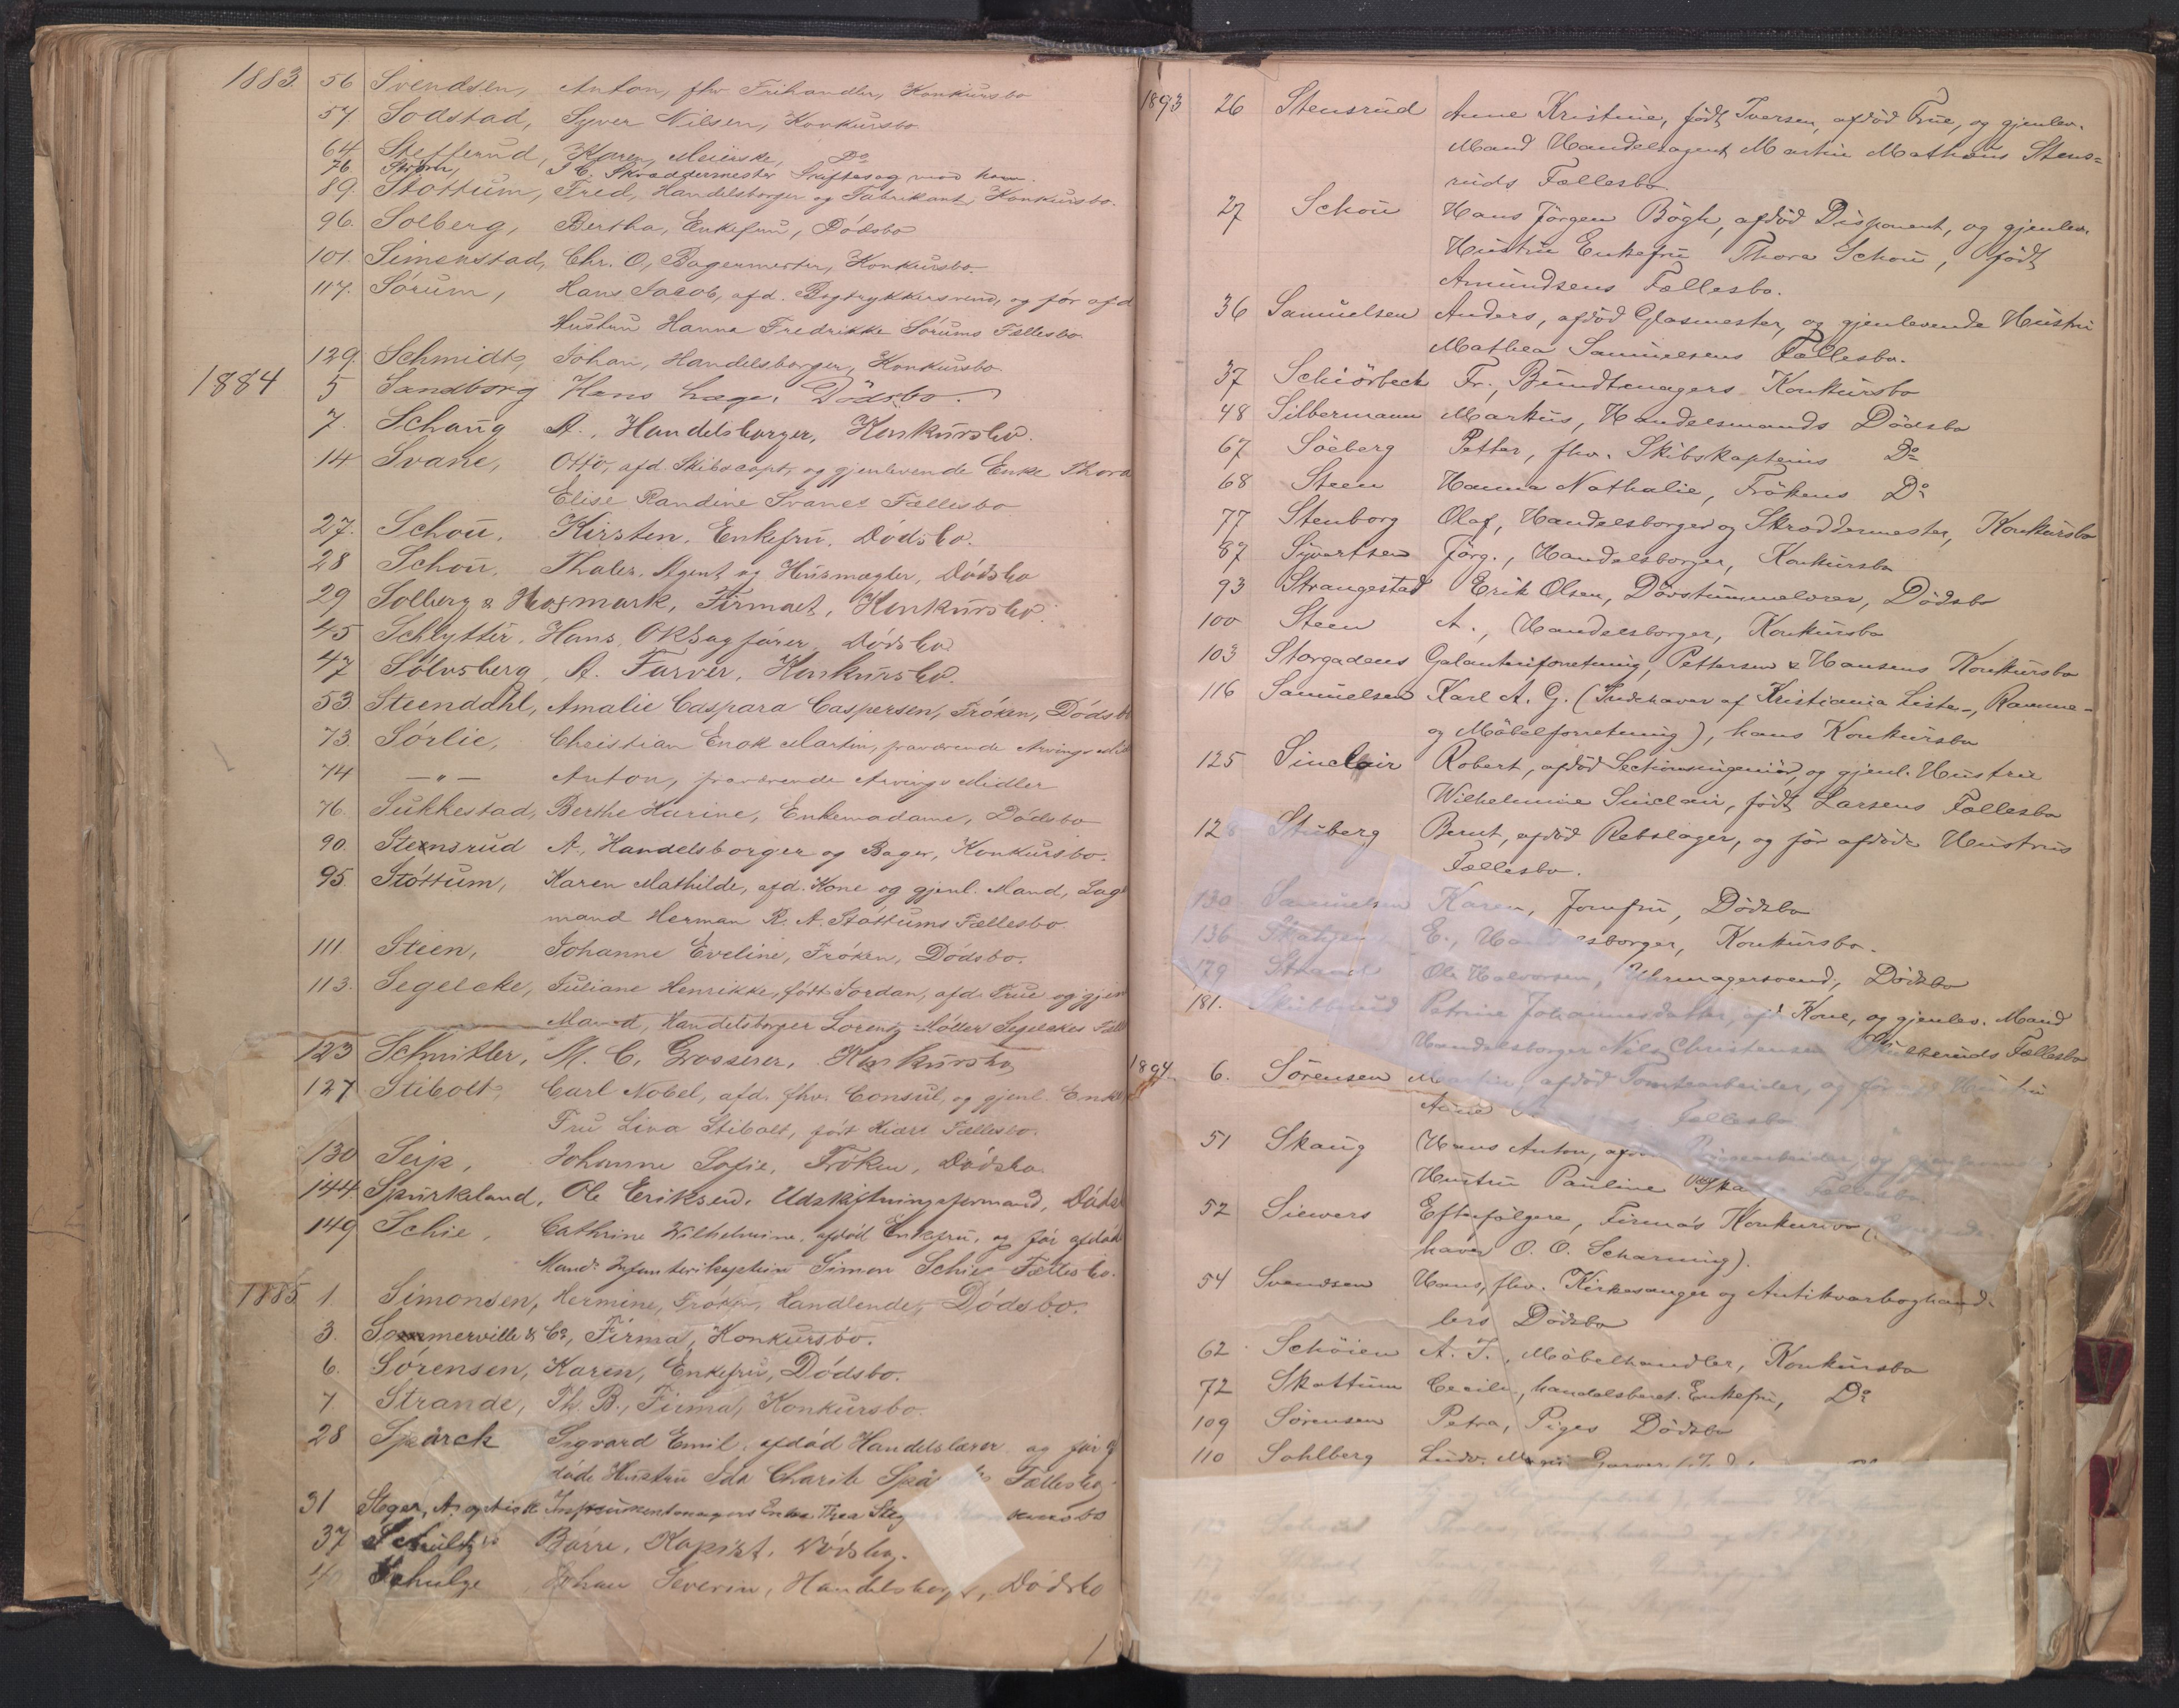 1883. 56 Svendsen, Anton, fhv. Frihandler, Konkursbo
57 Sodstad, Syver Nilsen, Konkursbo
64 Skefferud, Karen, Meierske, Do
76 Strøm, Skræddermester Skiftesag mod ham.
89. Støttum, Fred, Handelsborger og Fabrikant, Konkursbo.
96. Solberg, Bertha, Enkefru, Dödsbo
101. Simenstad, Chr. O, Bagermester, Konkursbo.
117. Sörum, Hans Jacob, afd. Bogtrykkersvend, og för afd
Hustru Hanna Fredrikke Sörums Fællesbo
129. Schmidt, Johan, Handelsborger, Konkursbo.
1884 5 Sandborg Hans Læge, Dödsbo.
7. Schaug A., Handelsborger, Konkursbo.
14 Svane, Otto, afd. Skibscapt. og gjenlevende Enke Thora
Elise Randine Svanes Fællesbo
27. Schou, Kirsten, Enkefru, Dödsbo.
28 Schou, Thaler, Agent og Husmægler, Dödsbo
29 Solberg & Hagmark, Firmaet, Konkursbo.
45 Schlytter, Hans, ORSagförer, Dödsbo
47 Sölvsberg, A. Farver, Konkursbo.
53 Steenddhl, Amalie Caspara Caspersen, Fröken, Dödsb
73 Sörlie, Christian Enok Martin, fraværende Arvings Mid
74 — " — Anton, fraværende Arvings Midler
76. Sukkestad, Berthe Karine, Enkemadame, Dödsbo
90. Stensrud A., Handelsborger og Bager, Konkursbo.
95. Stöttum, Karen Mathilde, afd. Kone og gjenl. Mand, Lag
mand Herman R. A. Stöttums Fællesbo
111. Stien, Johanne Eveline, Fröken, Dödsbo.
113. Segelcke, Juliane Henrikke, født Jordan, afd. Frue og gjen
Mand, Handelsborger Lorentz Möller Segelckes Fæll
123 Schnitler, M. C. Grosserer, Konkursbo
127 Stibolt, Carl Nobel, afd. fhv. Consul, og gjenl. Enke
Fru Lina Stibolt, født Kiærs Fællesbo.
130 Seip, Johanne Sofie, Fröken, Dödsbo.
144 Spurkeland, Ole Eriksen, Udskiftningsformand, Döds
149 Schie, Cathrine Wilhelmine, afdöd Enkefru, og för afdöd
Mand Infanterikaptein Simon Schies Fællesbo.
1885 1 Simonsen, Hermine, Fröken, Handlende, Dödsbo.
3. Sommerville & Co, Firma, Konkursbo.
6. Sörensen, Karen, Enkefru, Dödsbo.
7 Strande, Th. B., Firma, Konkursbo.
28 Spärck Sigvard Emil, afdöd Handelslærer og för af
döde Hustru Ida Charite Spä Fællesbo
31 Steger, A. optisk Instrumentmagers Enke Thea Steg
37 Schultz Börre, Kopist, Dödsbo.
40 Schulze Johan Severin, Handelsborger, Dödsbo
1893 26 Stensrud Anne Kristine, født Iversen, afdöd Frue, og gjenlev.
Mand Handelsagent Martin Mathæus Stens=
ruds Fællesbo
27 Schou Hans Jörgen Bögh, afdöd Disponent, og gjenlev.
Hustru Enkefru Thora Schou, født
Amundsens Fællesbo.
36 Samuelsen Anders, afdöd Glasmester, og gjenlevende Hustru
Mathea Samuelsens Fællesbo.
37 Schiörbeck Fr., Bundtmagers Konkursbo
48 Silbermann Markus, Handelsmands Dödsbo
67 Söeberg Petter, fhv. Skibskapteins Do
68 Steen Hanna Nathalie, Frökens Do
77 Stenborg Olaf, Handelsborger og Skræddermester, Konkursbo
87 Syvertsen Jörg., Handelsborger, Konkursbo
93 Strangestad Erik Olsen, Dövstummelærer, Dödsbo
100 Steen A., Handelsborger, Konkursbo
103 Storgadens Galanteriforretning, Pettersen & Hansens Konkursbo
116 Samuelsen Karl A. G. (Indehaver af Kristiania Liste-, Ramme-
og Möbelforretning), hans Konkursbo
125 Sinclair Robert, afdöd Sectionsingeniör, og gjenl. Hustru
Wilhelmine Sinclair, født Larsens Fællesbo
128 Stuberg Bernt, afdöd Rebslager, og för afdöde Hustrus
Fællesbo.
130 Samuelsen Karen, Jomfru, Dödsbo
136 E., Handelsborger, Konkursbo.
179 Strand Ole Halvorsen, Uhrmagersvend, Dödsbo
181. Skibberud Petrine Johannesdatter, afd Kone, og gjenlev. Mand
Handelsborger Nils Christensen Skibberuds Fællesbo
1894. 6. Sörensen Martin, afdöd Tomtearbeider, og för afd Hustru
Anne Fællesbo
51 Skaug Hans Anton, afdöd
Hustru Pauline Ska Fællesbo
52 Siewers Efterfölgere, Firmas Konkursbo
haver O. O. Scharning).
54 Svendsen Hans, fhv. Kirkesanger og Antikvarboghand-
lers Dödsbo
62 Schöien A. T., Möbelhandler, Konkursbo
72 Skattum Cecilie, handelsberet. Enkefru, Do
109 Sörensen Petra, Piges Dödsbo
110 Sohlberg